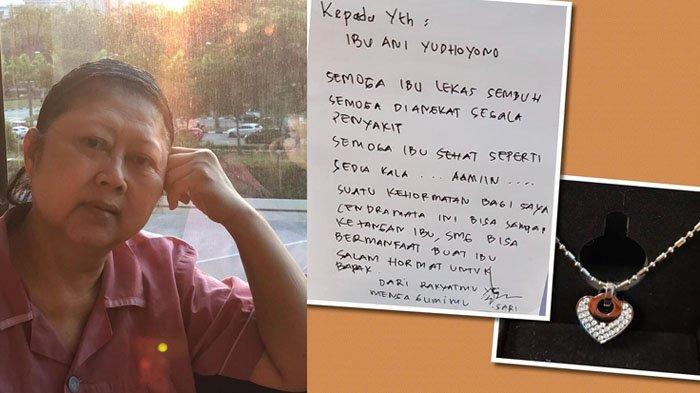 Kepada Yth :
IBU ANI YUDHOYONO
SEMOGA IBU LEKAS SEMBUH
SEMOGA DIANGKAT SEGALA
PENYAKIT
SEMOGA IBU SEHAT SEPERTI
SEDIA KALA ... AAMIIN ....
SUATU KEHORMATAN BAGI SAYA
CENDRAMATA INI BISA SAMPAI
KETANGAN IBU, SMG BISA
BERMANFAAT BUAT IBU
SALAM HORMAT UNTUK
BAPAK
DARI RAKYATMU
MENGAGUMIMU
SARI